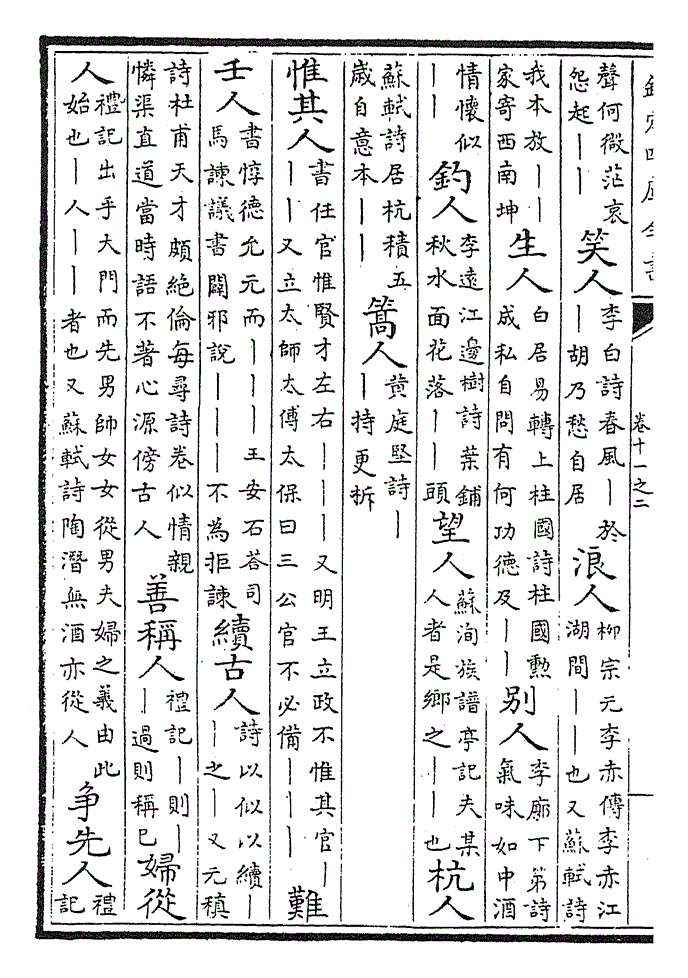 欽定四庫全書 卷十一之二
聲何微茫哀怨起｜｜ 笑人 李白詩春風｜於｜胡乃愁自居 浪人 柳宗元李赤傳李赤江湖間｜｜也又蘇軾詩
我本放｜｜家寄西南坤 生人 白居易轉上柱國詩柱國勲成私自問有何功德及｜｜ 别人 李廓下第詩氣味如中酒
情懷似｜｜ 釣人 李遠江邊樹詩葉鋪秋水面花落｜｜頭 望人 蘇洵族譜亭記夫某人者是鄉之｜｜也 杭人
蘇軾詩居杭積五歲自意本｜｜ 篙人 黄庭堅詩｜｜持更拆
惟其人 書任官惟賢才左右｜｜｜又明王立政不惟其官｜｜｜又立太師太傅太保曰三公官不必備｜｜｜ 難
壬人 書惇德允元而｜｜｜王安石荅司馬諫議書闢邪說｜｜｜不為拒諫 續古人 詩以似以續｜｜之｜又元稹
詩杜甫天才頗絶倫每尋詩卷似情親憐渠直道當時語不著心源傍古人 善稱人 禮記｜則｜｜過則稱已 婦從
人 禮記出乎大門而先男帥女女從男夫婦之義由此始也｜人｜｜者也又蘇軾詩陶潛無酒亦從人 爭先人 禮記